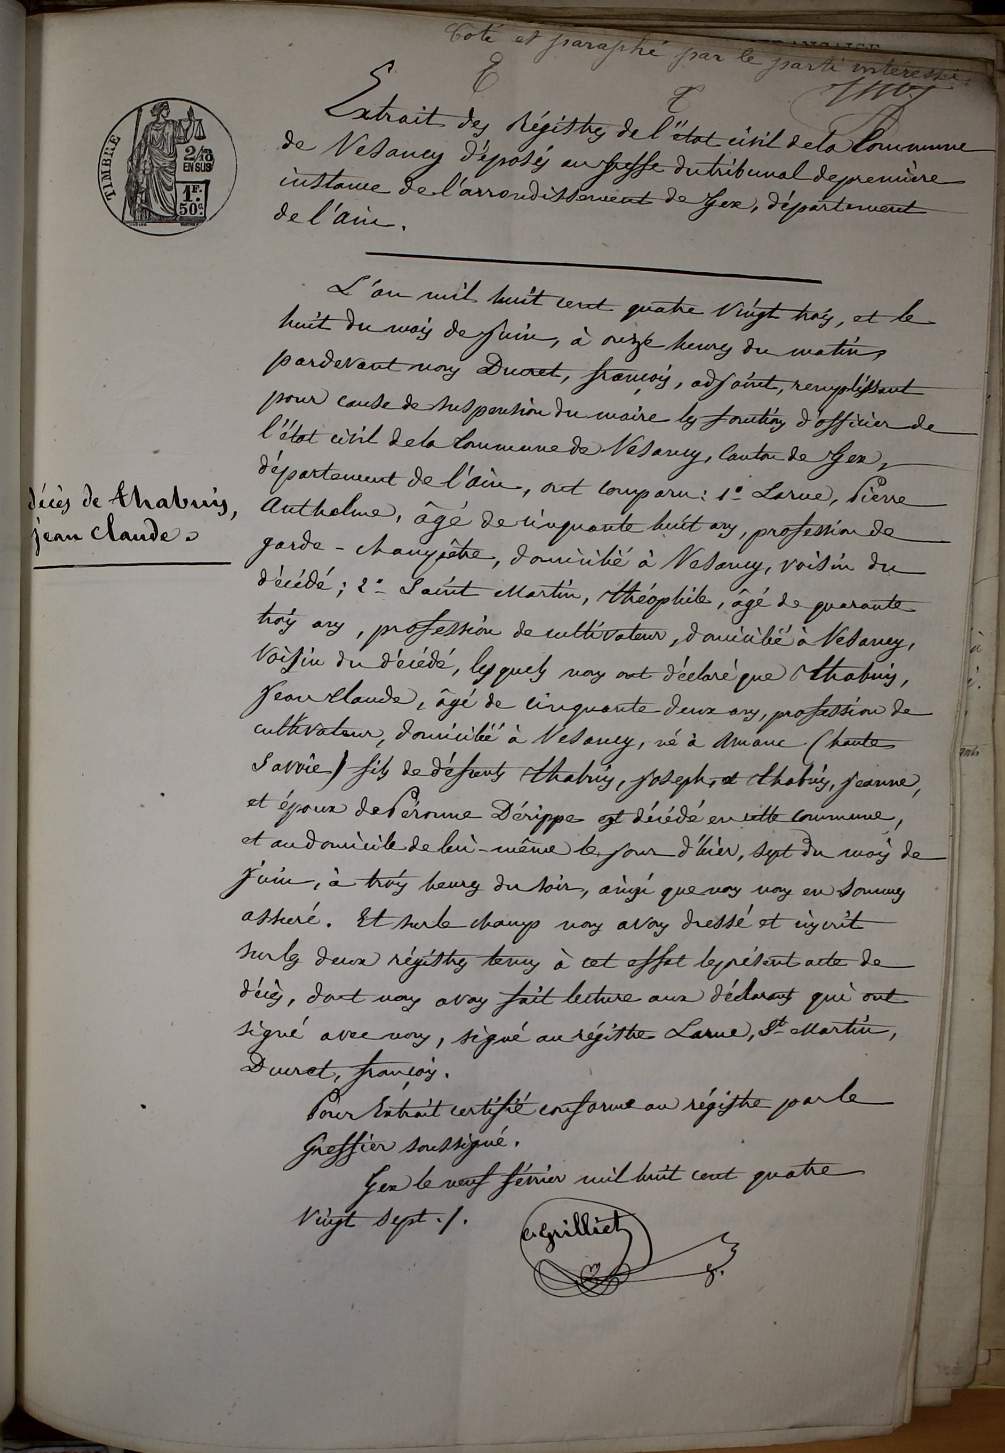 Coté et paraphé par le parti interessé.
TIMBRE
2/10
EN SUS
1F.
50c.
Extrait des régistres de l'état civil de la Commune
de Vesancy déposés au greffe du tribunal de première
instance de l'arrondissement de Gex, département
de l'ain.
L'an mil huit cent quatre vingt trois, et le
huit du mois de Juin, à onze heures du matin,
pardevant nous Ducret, françois, adjoint, remplissant
pour cause de suspension du maire les fonctions d'officier de
l'état civil de la Commune de Vesancy, Canton de Gex,
département de l'ain, ont comparu: 1° Larue, Pierre
Anthelme, âgé de cinquante huit ans, profession de
garde-champêtre, domicilié à Vesancy, voisin du
décédé; 2° Saint Martin, théophile, âgé de quarante
trois ans, profession de cultivateur, domicilié à Vesancy,
Voisin du décédé, lesquels nous ont déclaré que thabuis,
Jean Claude, âgé de cinquante deux ans, profession de
cultivateur, domicilié à Vesancy, né à Amanc (haute
Savoie) fils de défunts thabuis, Joseph, et thabuis, Jeanne,
et époux de Péronne Dérippe est décédé en cette commune,
et au domicile de lui-même le jour d'hier, sept du mois de
Juin, à trois heures du soir, ainsi que nous nous en sommes
assuré. Et sur le champ nous avons dressé et inscrit
sur les deux régistres tenus à cet effet le présent acte de
décès, dont nous avons fait lecture aux déclarants qui ont
signé avec nous, signé au régistre Larue, St Martin,
Ducret, françois.
décès de thabuis,
jean claude.
Pour Extrait certifié conforme au régistre par le
Greffier soussigné.
Gex le neuf février mil huit cent quatre
Vingt sept ./.
C. Grilliet